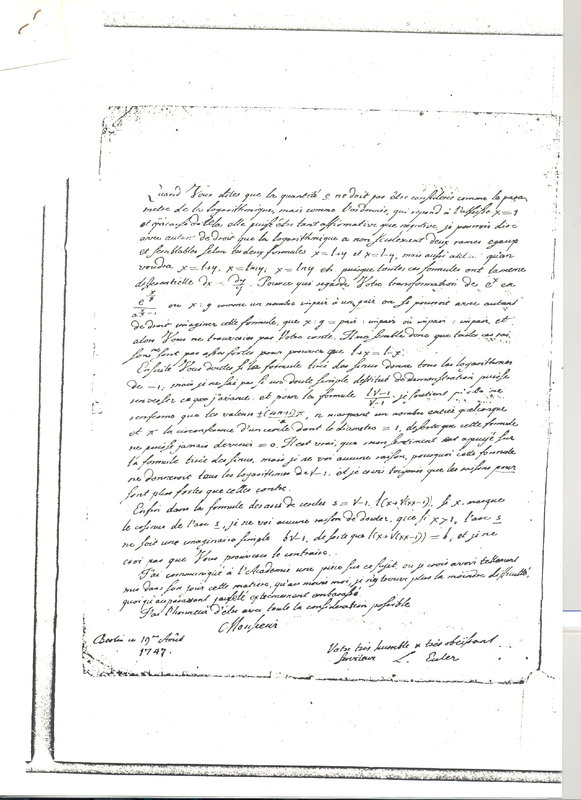 Quand Vous dites que la quantité e ne doit pas être considérée comme la para-
metre de la logarithmique, mais comme l'ordonnée, qui repond à l'abscisse x = 1
et qu'à cause de cela elle puisse être tant affirmative que negative, je pourrois dire
avec autant de droit que la logarithmique a non seulement deux rames egaux
et semblables selon les deux formules x = l+y et x = l-y, mais aussi qu'on
voudra x = l+y, x = lny, x = lny etc. puisque toutes ces formules ont la meme
differentielle dx = dy/y. Pource que regarde Votre transformation de e^x en
ou x : g comme un nombre impair à un pair on se pourroit avec autant
de droit imaginer cette formule, que x : g = pair : impair ou impair : impair, et
alors Vous ne trouveriez pas Votre conte. Il me semble donc que toutes ces rai-
sons ne sont pas assez fortes pour prouver que l+x = l-x.
Ensuite Vous doutez si la formule tirée des sinus donne tous les logarithmes
de -1, mais je ne sai pas si un doute simple destitué de demonstration puisse
renverser ce que j'avance. et pour la formule l√-1/√-1, je soutiens qu'elle ne
renferme que les valeurs π, n marquant un nombre entier quelconque
et π la circonference d'un cercle dont le diametre = 1, de sorte que cette formule
ne puisse jamais devenir = 0. Il est vrai, que mon sentiment est apuyé sur
la formule tirée des sinus, mais je ne voi aucune raison, pourquoi cette formule
ne donneroit tous les logarithmes de √-1. et je crois toujours que les raisons pour
sont plus fortes que celles contre.
Enfin dans la formule des arcs de cercles s = √-1. l(x+√(xx-1)). Si x marque
le cosinus de l'arc s, je ne voi aucune raison de douter, que si x>1, l'arc s
ne soit une imaginaire simple b√-1, de sorte que l(x+√(xx-1)) = b, et je ne
croi pas que Vous prouviez le contraire.
J'ai communiqué à l'Academie une piece sur ce sujet où je crois avoir tellement
mis dans son jour cette matiere, qu'au moins moi, je n'y trouve plus la moindre difficulté,
quoiqu'auparavant j'aye été extremement embarassé.
J'ai l'honneur d'etre avec toute la consideration possible
Monsieur
Berlin ce 19me Août
1747.
Votre très humble & très obeissant
serviteur L. Euler